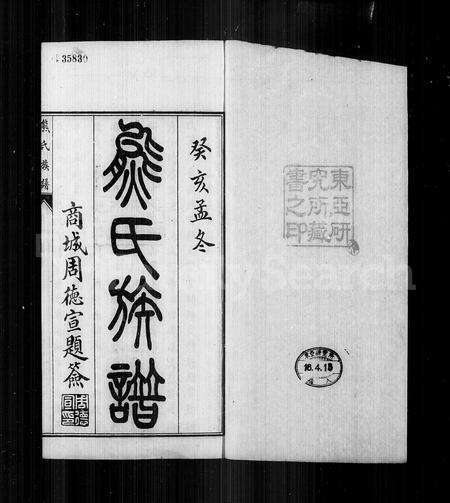 東亞研
究所藏
書之印
16.4.15
癸亥孟冬
熊氏族譜
商城周德宣題簽
周德
宣印
熊氏族譜
35830
Search